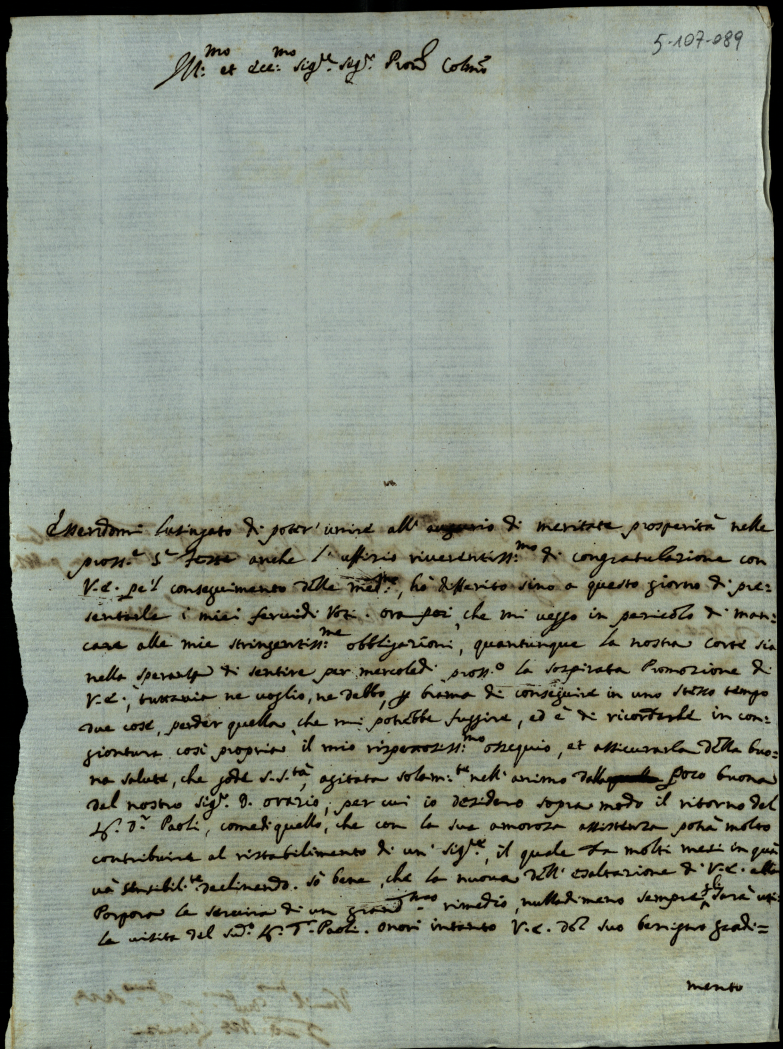 5-107-089
Ill:mo et Ecc:mo Sig:re Sig:re Pron Colmo
Essendomi lusingato di poter' unire all' augurio di meritate prosperità nelle
pross:e S:e Feste anche l' uffizio riverentiss:mo di congratulazione con
V.E. pe'l conseguimento delle med:me, hò differito sino a questo giorno di pre=
sentarle i miei fervidi Voti. Ora poi, che mi veggo in pericolo di man=
care alle mie stringentiss:me obbligazioni, quantunque la nostra Corte sia
nella speranza di sentire per mercoledì pross:o la sospirata Promozione di
V.E., tuttavia ne voglio, ne debbo, p brama di conseguire in uno stesso tempo
due cose, perder quella, che mi potrebbe fuggire, ed è di ricordarle in con=
giontura così propria il mio rispettosiss:mo ossequio, et assicurarla della buo=
na salute, che gode S.S.tà, agitata solam:te nell' animo dalla poco buona
del nostro Sig:r D. Orazio, per cui io desidero sopra modo il ritorno del
P. D:r Paoli, come di quello, che con la sua amorosa assistenza potrà molto
contribuire al ristabilimento di un' Sig:re, il quale da molti mesi in quà
và sensibil:te declinando. Sò bene, che la nuova dell' esaltazione di V.E. alla
Porpora le servirà di un grandmo rimedio, nulladimeno sempre gli sarà uti=
le la visita del sud:o P. D:r Paoli. Onori intanto V.E. del suo benigno gradi=
mento